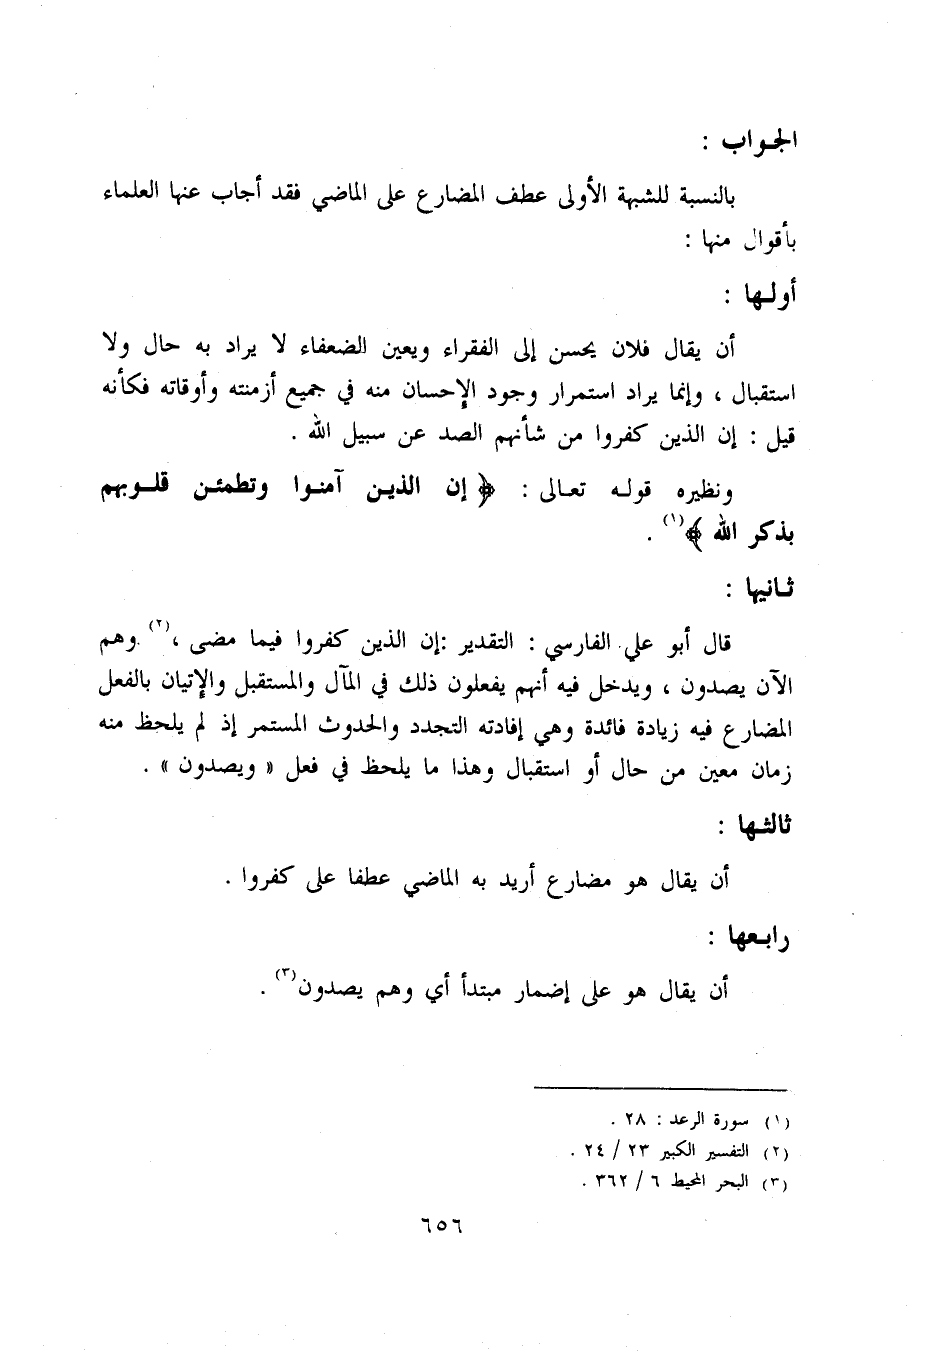 الجـواب :
بالنسبة للشبهة الأولى عطف المضارع على الماضي فقد أجاب عنها العلماء
بأقوال منها :
أولـها :
أن يقال فلان يحسن إلى الفقراء ويعين الضعفاء لا يراد به حال ولا
استقبال ، وإنما يراد استمرار وجود الإحسان منه في جميع أزمنته وأوقاته فكأنه
قيل : إن الذين كفروا من شأنهم الصد عن سبيل الله .
ونظيره قولـه تعـالى : ﴿ إن الذيـن آمنـوا وتطمئـن قلـوبهم
بذكر الله ﴾(١) .
ثـانيها :
قال أبو علي الفارسي : التقدير :إن الذين كفروا فيما مضى ،(٢) وهم
الآن يصدون ، ويدخل فيه أنهم يفعلون ذلك في المآل والمستقبل والإتيان بالفعل
المضارع فيه زيادة فائدة وهي إفادته التجدد والحدوث المستمر إذ لم يلحظ منه
زمان معين من حال أو استقبال وهذا ما يلحظ في فعل « ويصدون » .
ثالثـها :
أن يقال هو مضارع أريد به الماضي عطفا على كفروا .
رابـعها :
أن يقال هو على إضمار مبتدأ أي وهم يصدون(٣) .
(١) سورة الرعد : ٢٨ .
(٢) التفسير الكبير ٢٣ / ٢٤ .
(٣) البحر المحيط ٦ / ٣٦٢ .
٦٥٦